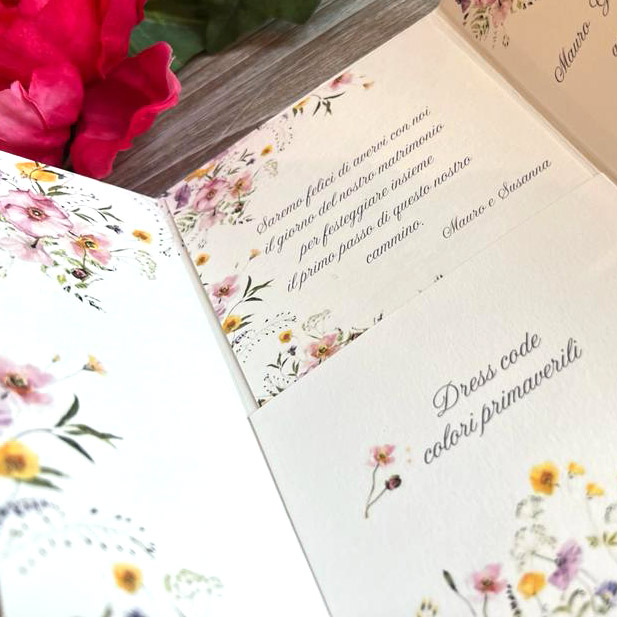 Saremo felici di avervi con noi
il giorno del nostro matrimonio
per festeggiare insieme
il primo passo di questo nostro
cammino.
Mauro e Susanna
Mauro
Dress code
colori primaverili